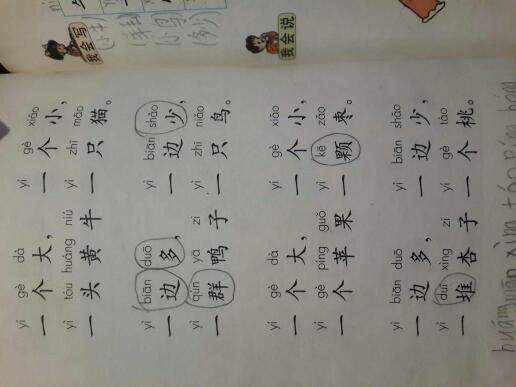 我会写
我会说
yí gè dà yí gè xiǎo
一个大，一个小，
yì tóu huáng niú yì zhī māo
一头黄牛一只猫。
yì biān duō yì biān shǎo
一边多，一边少，
yì qún yā zi yì zhī niǎo
一群鸭子一只鸟。
yí gè dà yí gè xiǎo
一个大，一个小，
yí gè píng guǒ yì kē zǎo
一个苹果一颗枣。
yì biān duō yì biān shǎo
一边多，一边少，
yì duī xìng zi yí gè táo
一堆杏子一个桃。